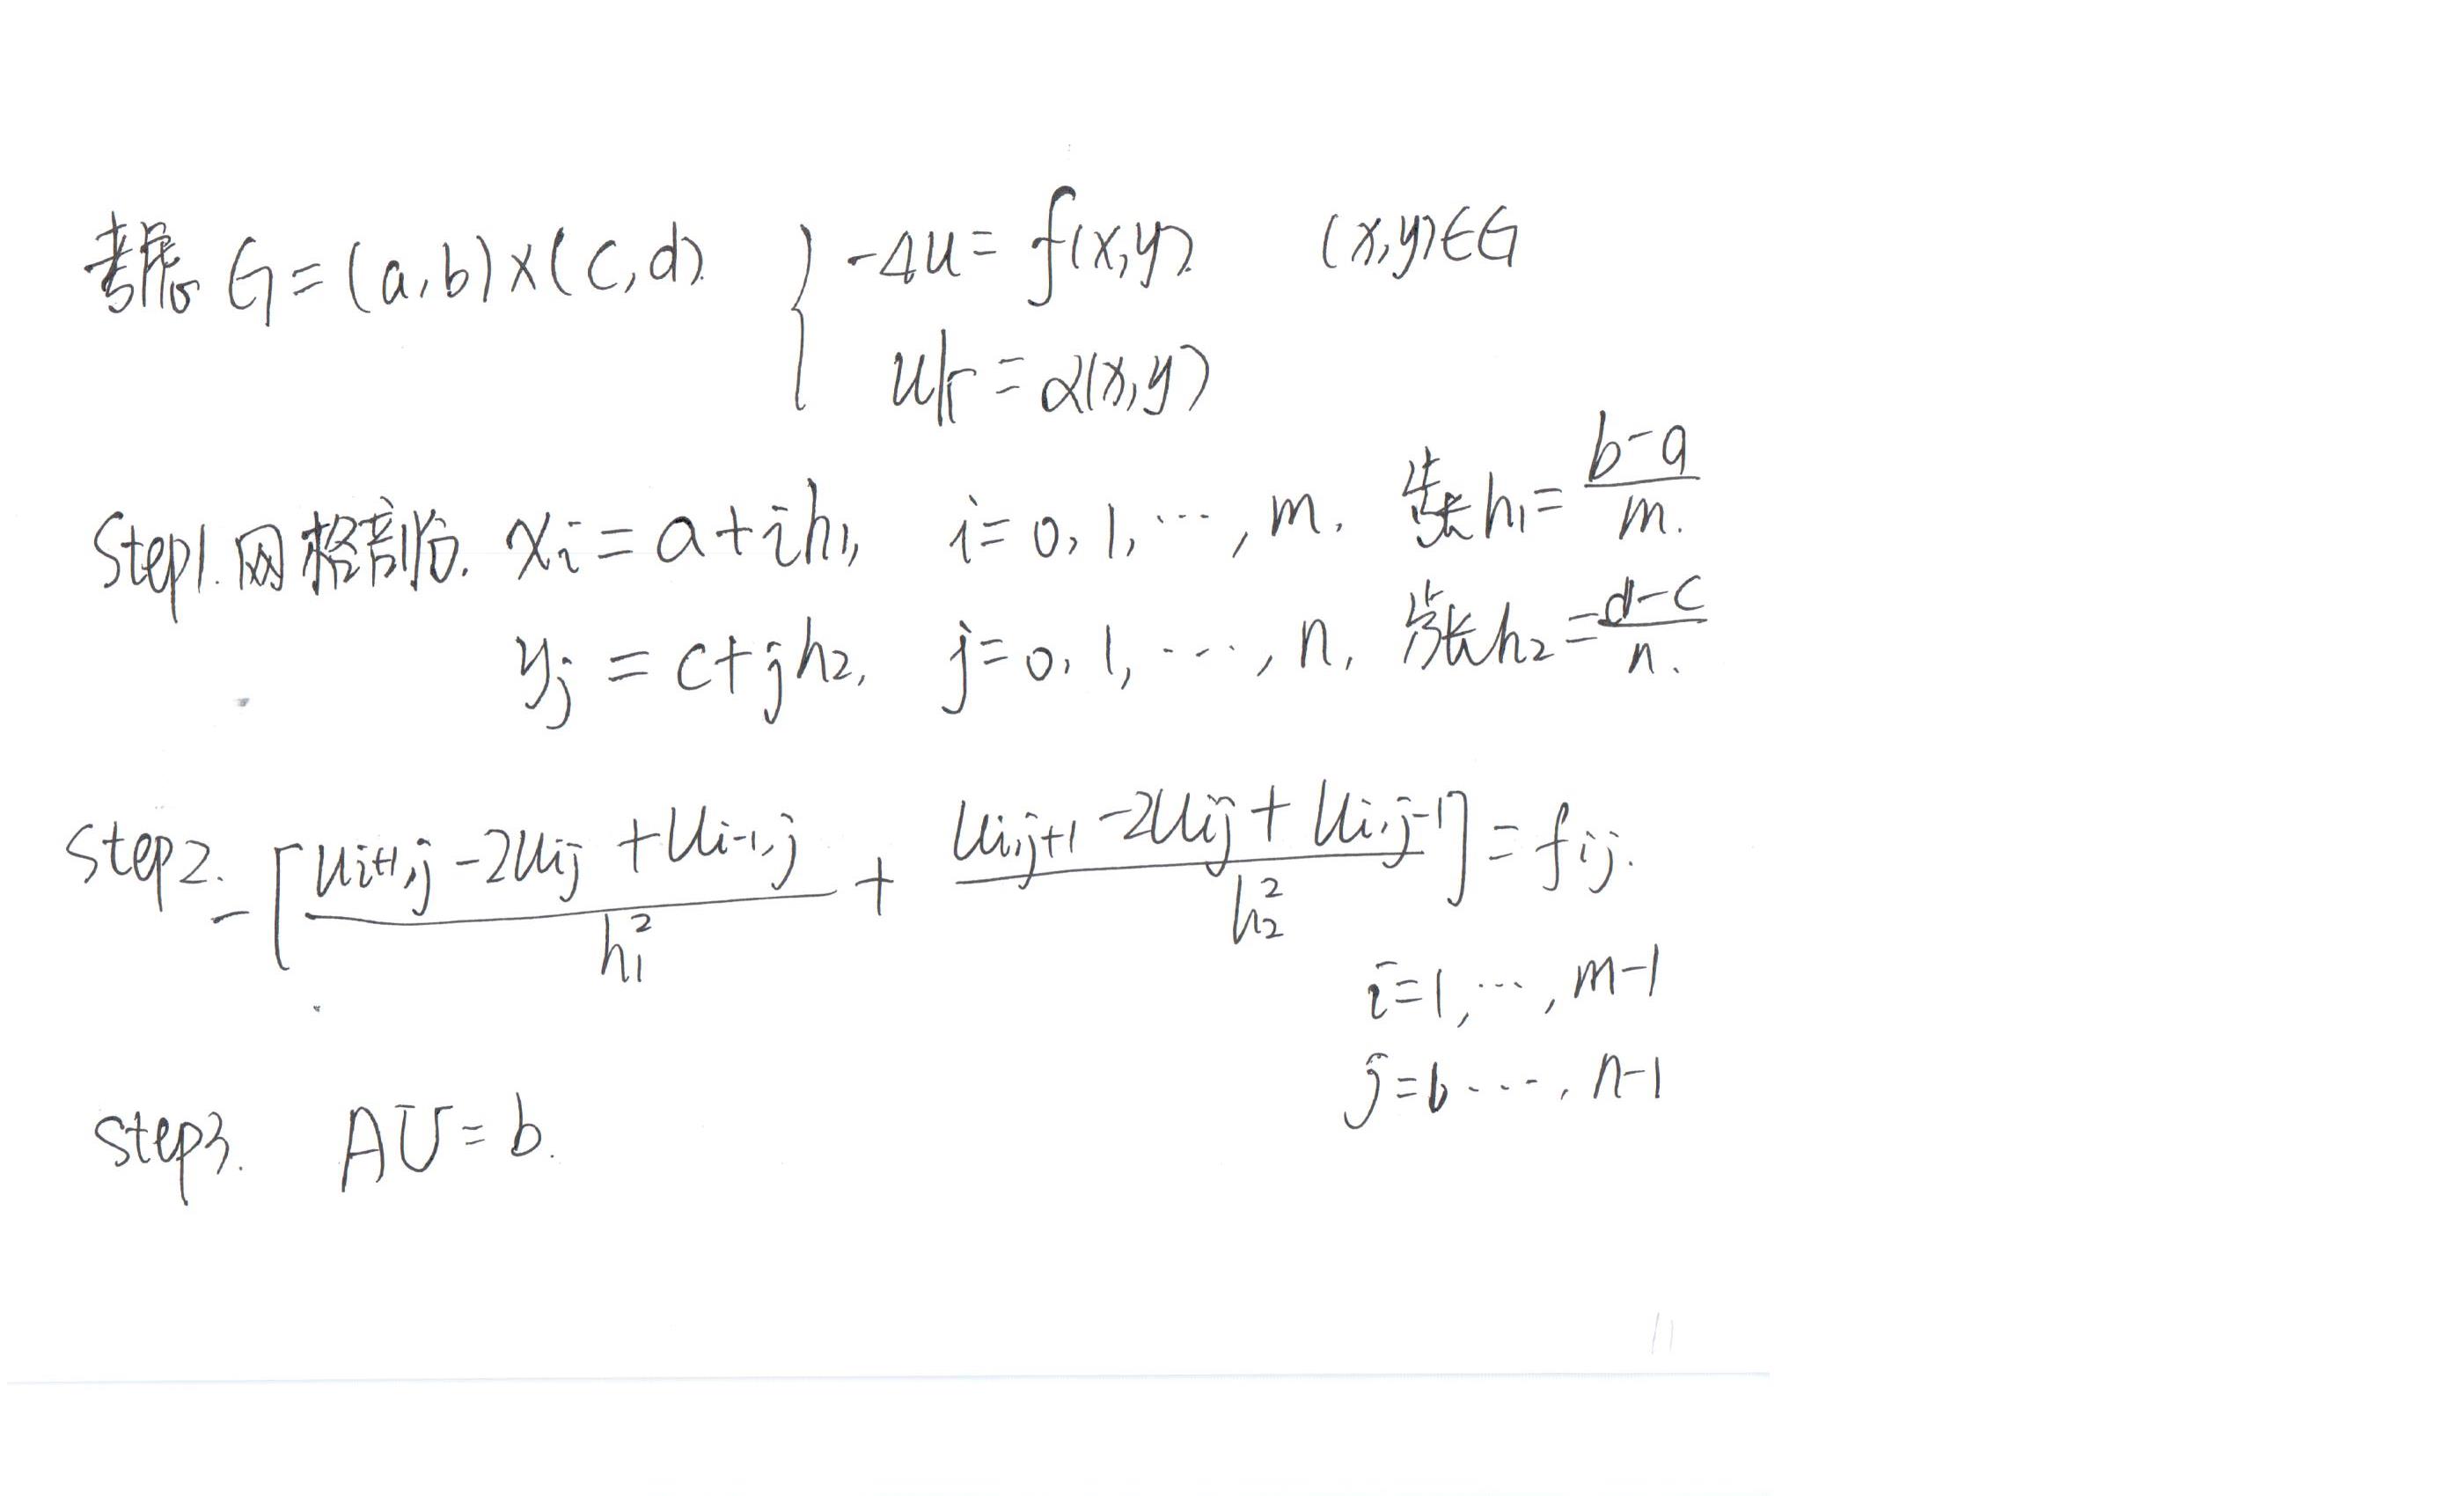 考虑 G=(a,b)×(c,d). { -Δu = f(x,y). (x,y)∈G
u|Γ = α(x,y)
Step1. 网格剖分. xi = a+ih1, i=0,1,⋯,m. 步长h1=(b-a)/m.
yj = c+jh2, j=0,1,⋯,n. 步长h2=(d-c)/n.
Step2. -[(ui+1,j -2uij +ui-1,j)/h1² + (ui,j+1 -2uij + ui,j-1)/h2²] = fij.
i=1,⋯,m-1
j=1,⋯,n-1
Step3. AU=b.